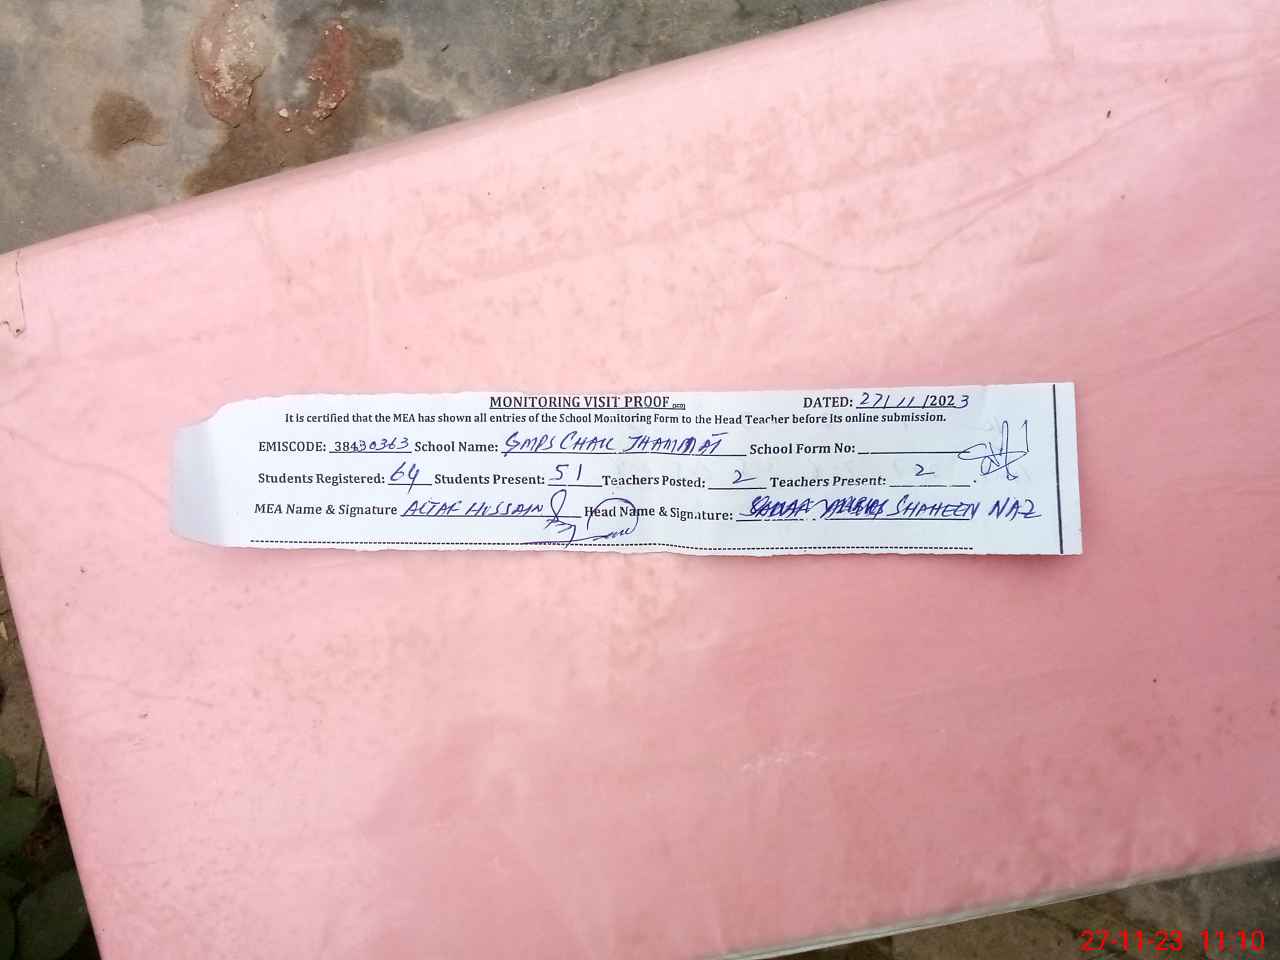 MONITORING VISIT PROOF DATED: 27/11/2023
It is certified that the MEA has shown all entries of the School Monitoring Form to the Head Teacher before its online submission.
EMISCODE: 38430363 School Name: GMPS CHAK JHAMMAT School Form No:
Students Registered: 64 Students Present: 51 Teachers Posted: 2 Teachers Present: 2
MEA Name & Signature ALTAF HUSSAIN Head Name & Signature: SHAHEEN NAZ
27-11-23 11:10